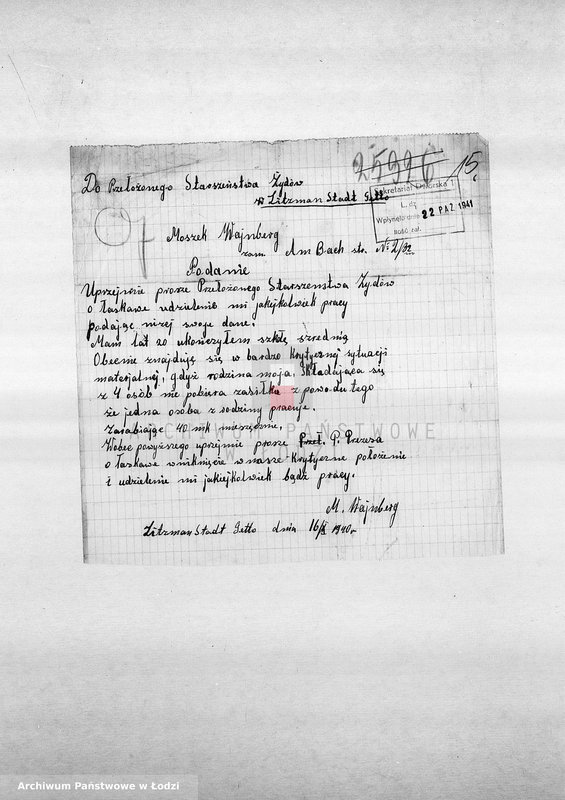 25996 15
Do Przełożonego Starszeństwa Żydów
w Litzman Stadt Getto
Sekretariat Dworska 1
L. dz.
Wpłynęło dnia 22 PAZ 1941
Ilość zał.
Moszek Wajnberg
zam. Am Bach str. № 2/32
Podanie
Uprzejmie proszę Przełożonego Starszenstwa Żydów
o łaskawe udzielenie mi jakiejkolwiek pracy
podając niżej swoje dane.
Mam lat 20 ukończyłem szkłę szrednią
Obecnie znajduję się w bardzo krytycznej sytuacji
materjalnej, gdyż rodzina moja, składająca się
z 4 osób nie pobiera zasiłku z powodu tego
że jedna osoba z rodziny pracuje.
Zarabiając 40 mk miesięcznie.
Wobec powyższego uprzejmie proszę Przeł. P. Prezesa
o łaskawe wniknięcie w nasze krytyczne położenie
i udzielenie mi jakiejkolwiek bądź pracy.
M. Wajnberg
Litzman Stadt Getto dnia 16/X 1940 r
ARCHIWUM PAŃSTWOWE
W ŁODZI
Archiwum Państwowe w Łodzi